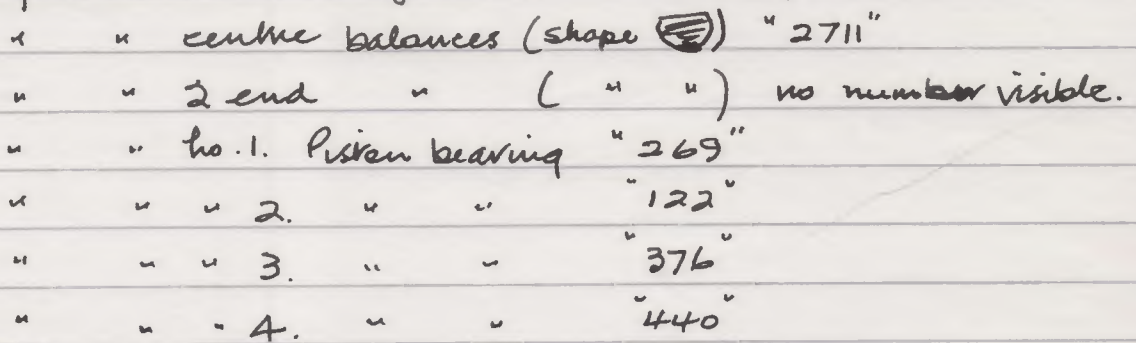 " " centre balances (shape ) "2711"
" " 2 end " ( " " ) no number visible.
" " No.1. Piston bearing "269"
" " " 2. " " "122"
" " " 3. " " "376"
" " " 4. " " "440"